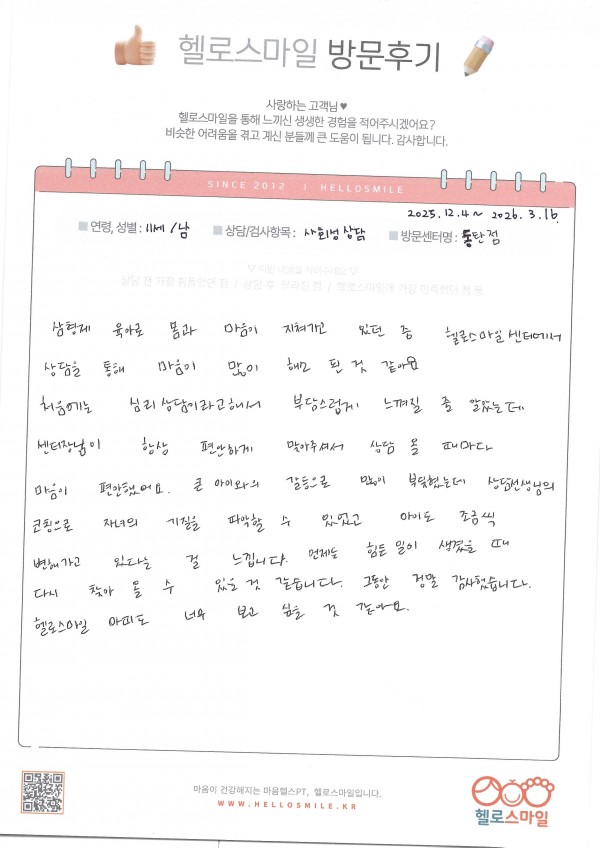 헬로스마일 방문후기
사랑하는 고객님 ♥
헬로스마일을 통해 느끼신 생생한 경험을 적어주시겠어요?
비슷한 어려움을 겪고 계신 분들께 큰 도움이 됩니다. 감사합니다.
SINCE 2012 | HELLOSMILE
2025.12.4 ~ 2026.3.16.
연령, 성별 : 11세 / 남 상담/검사항목 : 사회성 상담 방문센터명 : 동탄점
삼형제 육아로 몸과 마음이 지쳐가고 있던 중 헬로스마일 센터에서
상담을 통해 마음이 많이 해소 된 것 같아요
처음에는 심리상담이라고해서 부담스럽게 느껴질 줄 알았는데
센터장님이 항상 편안하게 맞아주셔서 상담 올 때마다
마음이 편안했어요. 큰 아이와의 갈등으로 많이 부딪혔는데 상담선생님의
코칭으로 자녀의 기질을 파악할 수 있었고 아이도 조금씩
변해가고 있다는 걸 느낍니다. 언제든 힘든 일이 생겼을 때
다시 찾아 올 수 있을 것 같습니다. 그동안 정말 감사했습니다.
헬로스마일 마피도 너무 보고 싶을 것 같아요.
마음이 건강해지는 마음헬스PT, 헬로스마일입니다.
WWW.HELLOSMILE.KR
헬로스마일